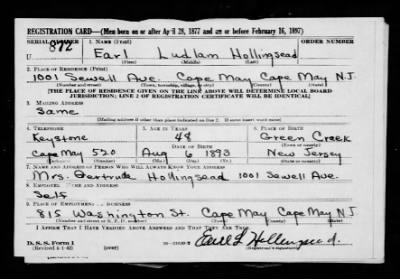 REGISTRATION CARD—(Men born on or after April 28, 1877 and on or before February 16, 1897)
SERIAL NUMBER 1. NAME (Print) ORDER NUMBER
U 872 Earl Ludlam Hollingsead
(First) (Middle) (Last)
2. PLACE OF RESIDENCE (Print)
1001 Sewell Ave. Cape May Cape May N.J.
(Number and street) (Town, township, village, or city) (County) (State)
[THE PLACE OF RESIDENCE GIVEN ON THE LINE ABOVE WILL DETERMINE LOCAL BOARD
JURISDICTION; LINE 2 OF REGISTRATION CERTIFICATE WILL BE IDENTICAL]
3. MAILING ADDRESS
Same
[Mailing address if other than place indicated on line 2. If same insert word same]
4. TELEPHONE 5. AGE IN YEARS 6. PLACE OF BIRTH
Keystone 48 Green Creek
DATE OF BIRTH (Town or county)
Cape May 520 Aug 6 1893 New Jersey
(Exchange) (Number) (Mo.) (Day) (Yr.) (State or country)
7. NAME AND ADDRESS OF PERSON WHO WILL ALWAYS KNOW YOUR ADDRESS
Mrs. Gertrude Hollingsead 1001 Sewell Ave.
8. EMPLOYER'S NAME AND ADDRESS
Self
9. PLACE OF EMPLOYMENT OR BUSINESS
815 Washington St. Cape May Cape May NJ
(Number and street or R. F. D. number) (Town) (County) (State)
I AFFIRM THAT I HAVE VERIFIED ABOVE ANSWERS AND THAT THEY ARE TRUE.
D. S. S. Form 1
(Revised 4-1-42) (over) Earl L Hollingsead.